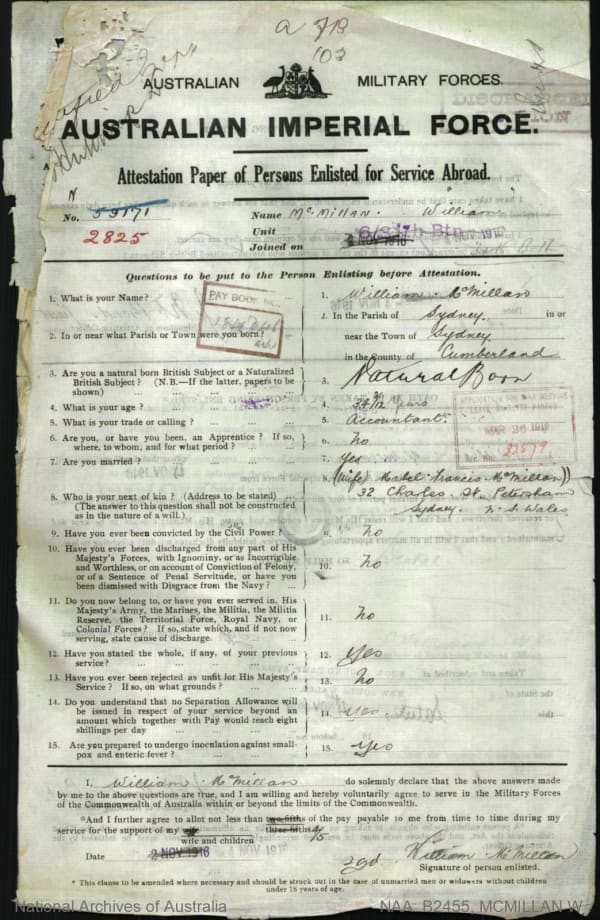 AUSTRALIAN MILITARY FORCES.
AUSTRALIAN IMPERIAL FORCE.
Attestation Paper of Persons Enlisted for Service Abroad.
No. 59171 Name McMillan. William
2825 Unit
Joined on 2 NOV 1918
Questions to be put to the Person Enlisting before Attestation.
1. What is your Name? ... 1. William McMillan
PAY BOOK No.
2. In or near what Parish or Town were you born? 2. In the Parish of Sydney in or
near the Town of Sydney
in the County of Cumberland
3. Are you a natural born British Subject or a Naturalized
British Subject? (N.B.—If the latter, papers to be
shown) 3. Natural Born
4. What is your age? 4. years
5. What is your trade or calling? 5. Accountant.
APPLICATION FOR WAR SERVICE
MAR 26 1919
22579
6. Are you, or have you been, an Apprentice? If so,
where, to whom, and for what period? 6. No
7. Are you married? 7. Yes
8. Who is your next of kin? (Address to be stated)
(The answer to this question shall not be construed
as in the nature of a will.) 8. (Wife) Mabel Francis McMillan
32 Charles St. Petersham
Sydney. N. S. Wales
9. Have you ever been convicted by the Civil Power? 9. No
10. Have you ever been discharged from any part of His
Majesty's Forces, with Ignominy, or as Incorrigible
and Worthless, or on account of Conviction of Felony,
or of a Sentence of Penal Servitude, or have you
been dismissed with Disgrace from the Navy? 10. No
11. Do you now belong to, or have you ever served in, His
Majesty's Army, the Marines, the Militia, the Militia
Reserve, the Territorial Force, Royal Navy, or
Colonial Forces? If so, state which, and if not now
serving, state cause of discharge. 11. No
12. Have you stated the whole, if any, of your previous
service? 12. Yes
13. Have you ever been rejected as unfit for His Majesty's
Service? If so, on what grounds? 13. No
14. Do you understand that no Separation Allowance will
be issued in respect of your service beyond an
amount which together with Pay would reach eight
shillings per day 14. yes
15. Are you prepared to undergo inoculation against small-
pox and enteric fever? 15. yes
I, William McMillan do solemnly declare that the above answers made
by me to the above questions are true, and I am willing and hereby voluntarily agree to serve in the Military Forces
of the Commonwealth of Australia within or beyond the limits of the Commonwealth.
*And I further agree to allot not less than two-fifths of the pay payable to me from time to time during my
service for the support of my wife three-fifths
wife and children
Date 2 NOV 1918 sgd. William McMillan
Signature of person enlisted.
* This clause to be amended where necessary and should be struck out in the case of unmarried men or widowers without children
under 18 years of age.
National Archives of Australia NAA: B2455, MCMILLAN W